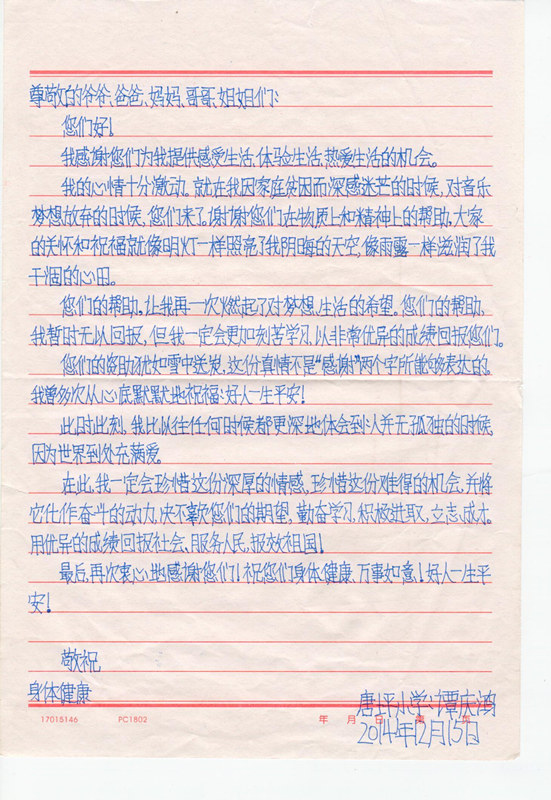 尊敬的爷爷、爸爸、妈妈、哥哥、姐姐们:
您们好!
我感谢您们为我提供感受生活,体验生活,热爱生活的机会。
我的心情十分激动。就在我因家庭贫困而深感迷芒的时候,对音乐
梦想放弃的时候,您们来了。谢谢您们在物质上和精神上的帮助。大家
的关怀和祝福就像明灯一样照亮了我阴晦的天空,像雨露一样滋润了我
干涸的心田。
您们的帮助,让我再一次燃起了对梦想、生活的希望。您们的帮助,
我暂时无以回报,但我一定会更加刻苦学习,以非常优异的成绩回报您们。
您们的资助犹如雪中送炭,这份真情不是“感谢”两个字所能够表达的,
我曾多次从心底默默地祝福:好人一生平安!
此时此刻,我比以往任何时候都更深地体会到:并无孤独的时候,
因为世界到处充满爱。
在此,我一定会珍惜这份深厚的情感,珍惜这份难得的机会,并将
它化作奋斗的动力,决不辜您们的期望,勤奋学习,积极进取,立志成才。
用优异的成绩回报社会、服务人民,报效祖国!
最后,再次衷心地感谢您们!祝您们身体健康、万事如意!好人一生平
安!
敬祝
身体健康
唐坪小学:谭庆鸿
17015146 PC1802 年 月 日 第 页
2014年12月15日